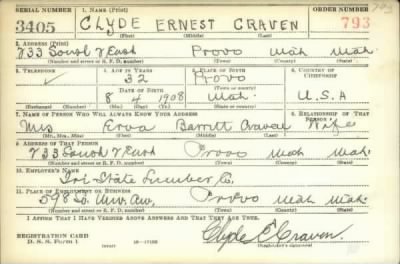 SERIAL NUMBER 1. NAME (Print) ORDER NUMBER
3405 CLYDE ERNEST CRAVEN 793
(First) (Middle) (Last)
2. ADDRESS (Print)
733 South 7 East Provo Utah Utah.
(Number and street or R. F. D. number) (Town) (County) (State)
3. TELEPHONE 4. AGE IN YEARS 5. PLACE OF BIRTH 6. COUNTRY OF CITIZENSHIP
32 Provo
DATE OF BIRTH (Town or county)
8 4 1908 Utah. U.S.A
(Exchange) (Number) (Mo.) (Day) (Yr.) (State or country)
7. NAME OF PERSON WHO WILL ALWAYS KNOW YOUR ADDRESS 8. RELATIONSHIP OF THAT PERSON
Mrs Erva Barrett Craven Wife
(Mr., Mrs., Miss) (First) (Middle) (Last)
9. ADDRESS OF THAT PERSON
733 South 7 East Provo Utah Utah.
(Number and street or R. F. D. number) (Town) (County) (State)
10. EMPLOYER'S NAME
Tri-State Lumber Co.
11. PLACE OF EMPLOYMENT OR BUSINESS
598 So. Univ. Av. Provo Utah Utah.
(Number and street or R. F. D. number) (Town) (County) (State)
I AFFIRM THAT I HAVE VERIFIED ABOVE ANSWERS AND THAT THEY ARE TRUE.
REGISTRATION CARD Clyde E Craven.
D. S. S. Form 1 (Registrant's signature)